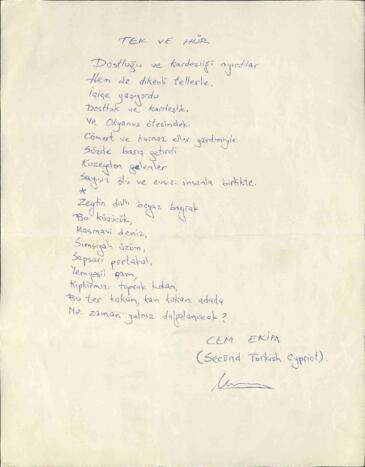 TEK VE HÜR
Dostluğu ve kardeşliği ayırdılar
Hem de dikenli tellerle.
İçiçe yaşıyordu
Dostluk ve kardeşlik.
Ve Okyanus ötesindeki
Cömert ve kurnaz eller yardımıyle
Sözde barış getirdi
Kuzeyden gelenler
Sayısız ölü ve evsiz insanla birlikte.
*
Zeytin dallı beyaz bayrak
Bu küçücük,
Masmavi deniz,
Simsiyah üzüm,
Sapsarı portakal,
Yemyeşil çam,
Kıpkırmızı toprak kokan,
Bu ter kokan, kan kokan adada
Ne zaman yalnız dalgalanacak?
CEM EKİM
(Second Turkish Cypriot).